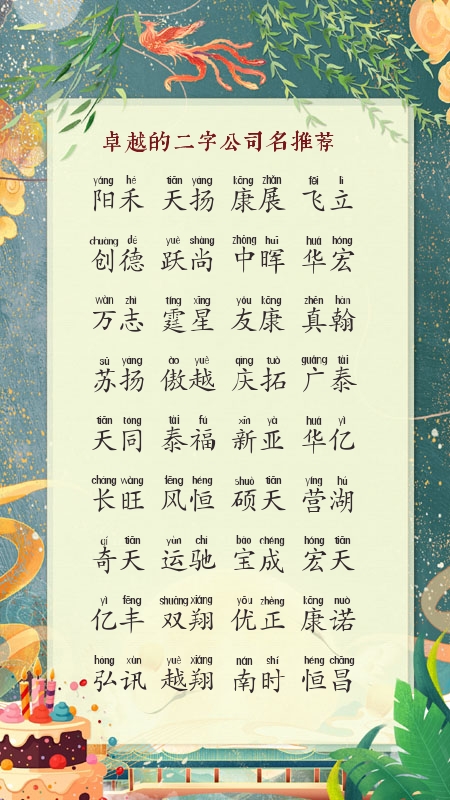 卓越的二字公司名推荐
yáng hé tiān yáng kāng zhǎn fēi lì
阳禾 天扬 康展 飞立
chuàng dé yuè shàng zhōng huī huá hóng
创德 跃尚 中晖 华宏
wàn zhì tíng xīng yǒu kāng zhēn hàn
万志 霆星 友康 真翰
sū yáng ào yuè qìng tuò guǎng tài
苏扬 傲越 庆拓 广泰
tiān tóng tài fú xīn yà huá yì
天同 泰福 新亚 华亿
cháng wàng fēng héng shuò tiān yíng hú
长旺 风恒 硕天 营湖
qí tiān yùn chí bǎo chéng hóng tiān
奇天 运驰 宝成 宏天
yì fēng shuāng xiáng yōu zhèng kāng nuò
亿丰 双翔 优正 康诺
hóng xùn yuè xiáng nán shí héng chāng
弘讯 越翔 南时 恒昌